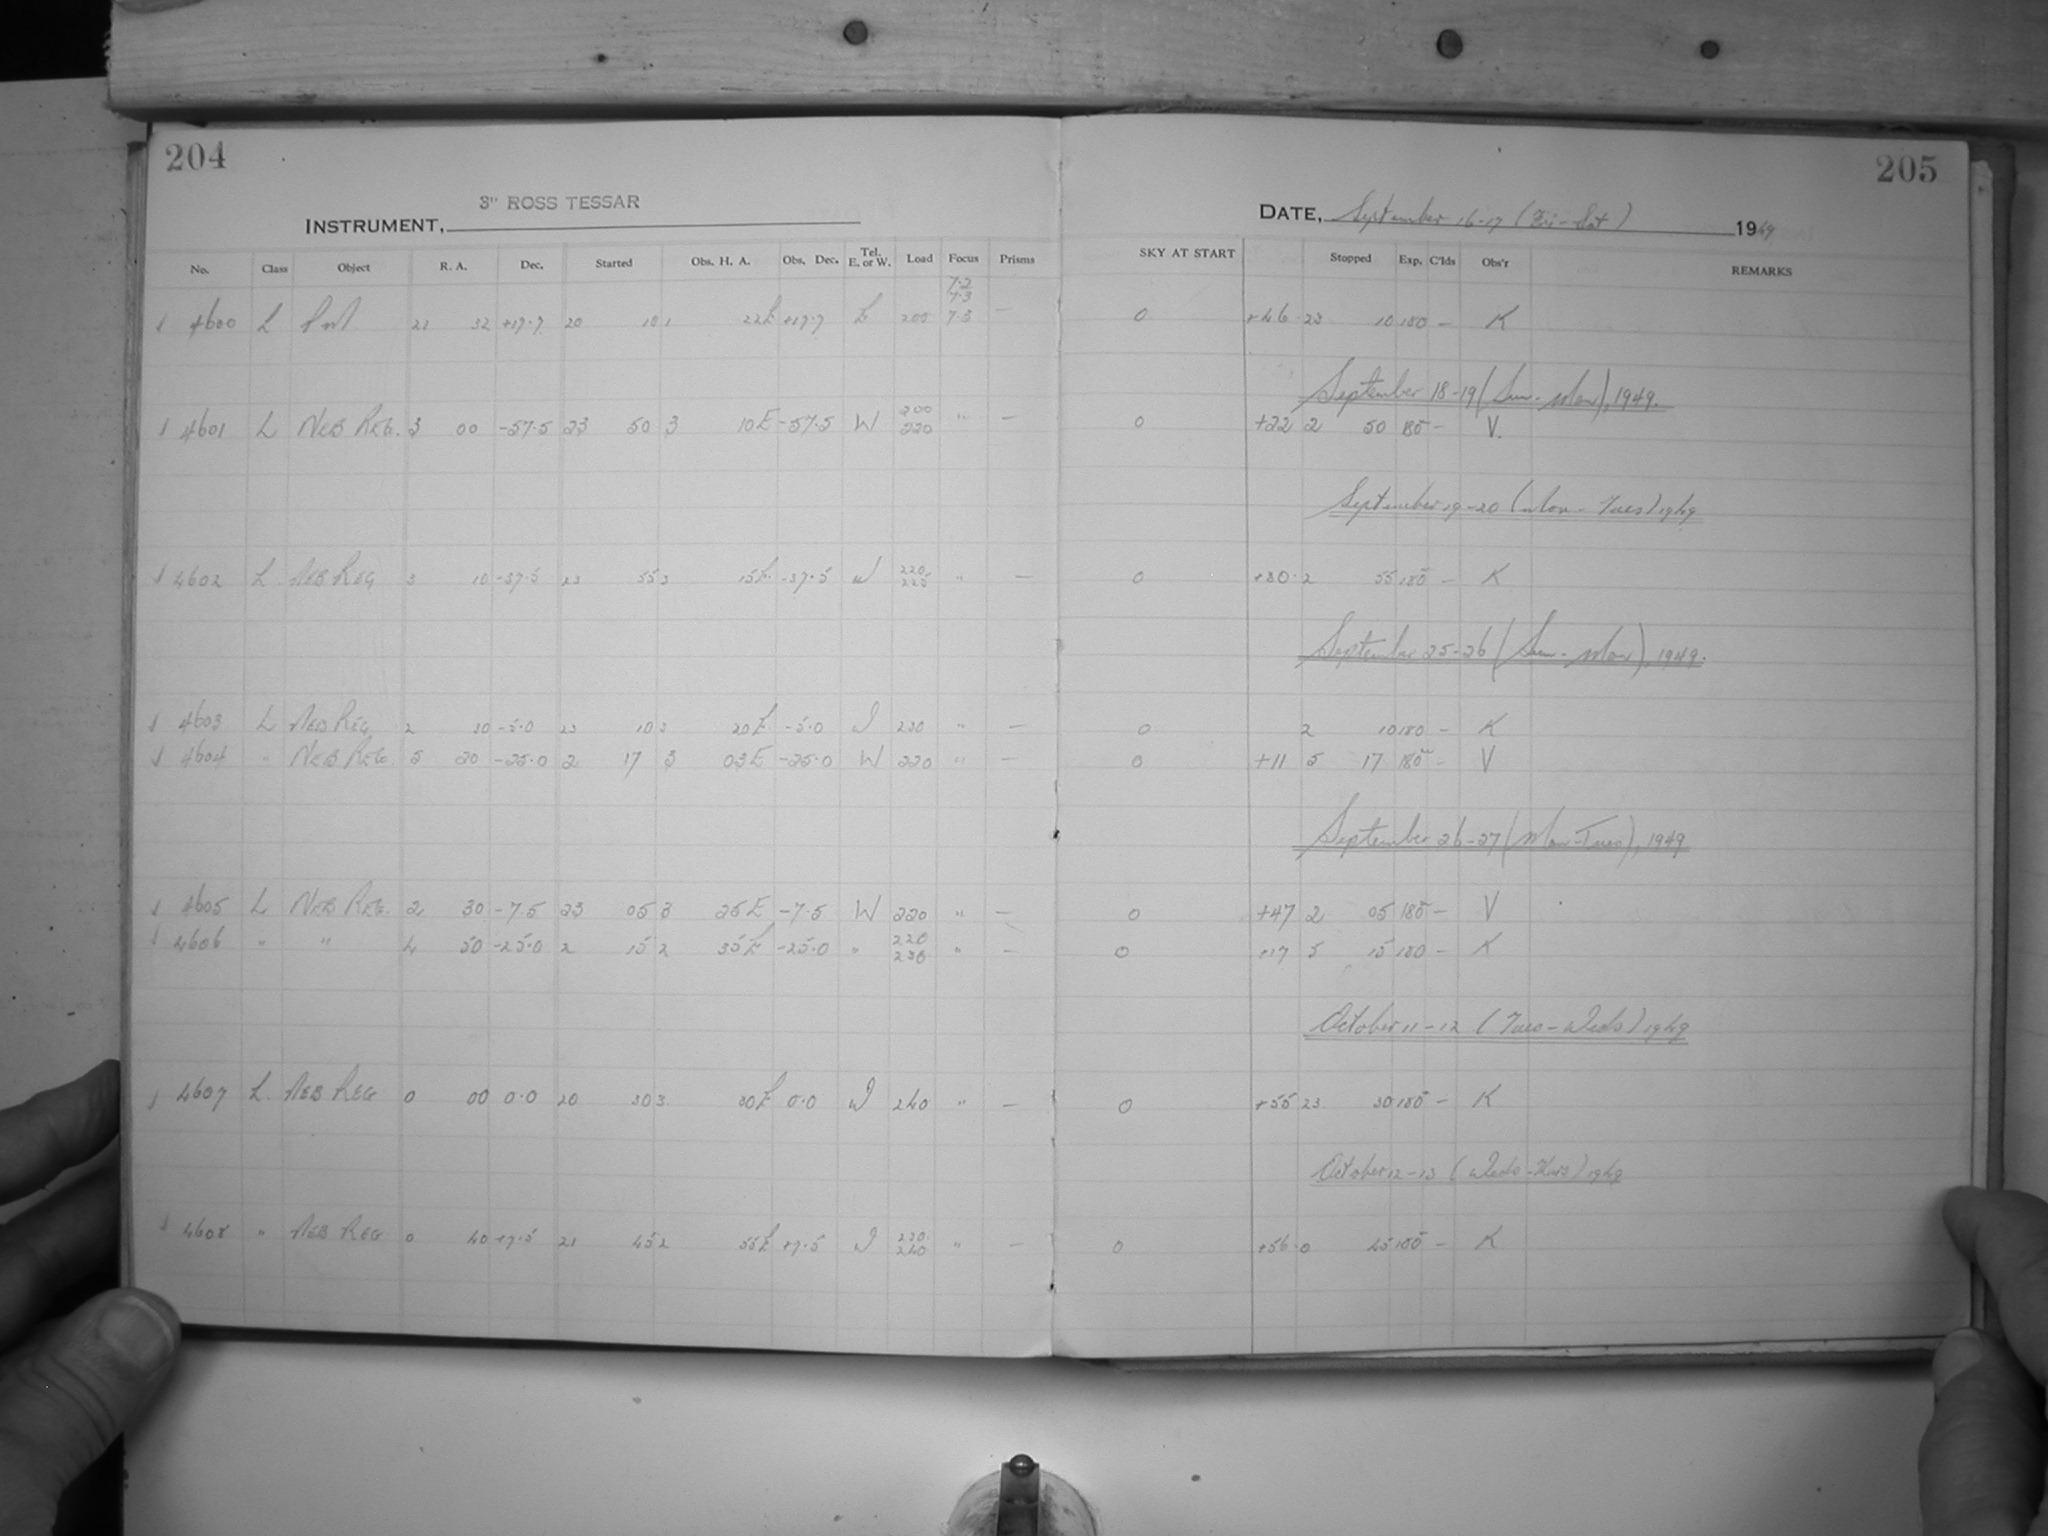 204
205
3" ROSS TESSAR
INSTRUMENT,
DATE, September 16-17 (Fri - Sat) 1949
No. Class Object R. A. Dec. Started Obs. H. A. Obs. Dec. Tel. E. or W. Load Focus Prisms SKY AT START Stopped Exp. C'lds Obs'r REMARKS
7.2
7.3
4600 L 21 32 +17.7 20 10 1 22E +17.7 E 200 7.3 — 0 +46 23 10 180 — K
September 18-19 (Sun - Mon), 1949.
200
4601 L NEB REG. 3 00 -57.5 23 50 3 10E -57.5 W 220 " — 0 +22 2 50 180 — V.
September 19-20 (Mon - Tues) 1949
220
4602 L NEB REG 3 10 -37.5 23 55 3 15E -37.5 W 225 " — 0 +30 2 55 180 — K
September 25-26 (Sun - Mon), 1949.
4603 L NEB REG 2 30 -5.0 23 10 3 20E -5.0 W 230 " — 0 2 10 180 — K
4604 " NEB REG. 5 20 -25.0 2 17 3 03E -25.0 W 220 " — 0 +11 5 17 180 — V
September 26-27 (Mon-Tues), 1949
4605 L NEB REG. 2 30 -7.5 23 05 3 25E -7.5 W 220 " — 0 +47 2 05 180 — V
220
4606 " " 4 50 -25.0 2 15 2 35E -25.0 " 230 " — 0 +17 5 15 180 — K
October 11-12 (Tues - Weds) 1949
4607 L NEB REG 0 00 0.0 20 30 3 30E 0.0 W 240 " — 0 +55 23 30 180 — K
October 12-13 (Weds - Thurs) 1949
230
4608 " NEB REG 0 40 +7.5 21 45 2 55E +7.5 W 240 " — 0 +56 0 45 180 — K